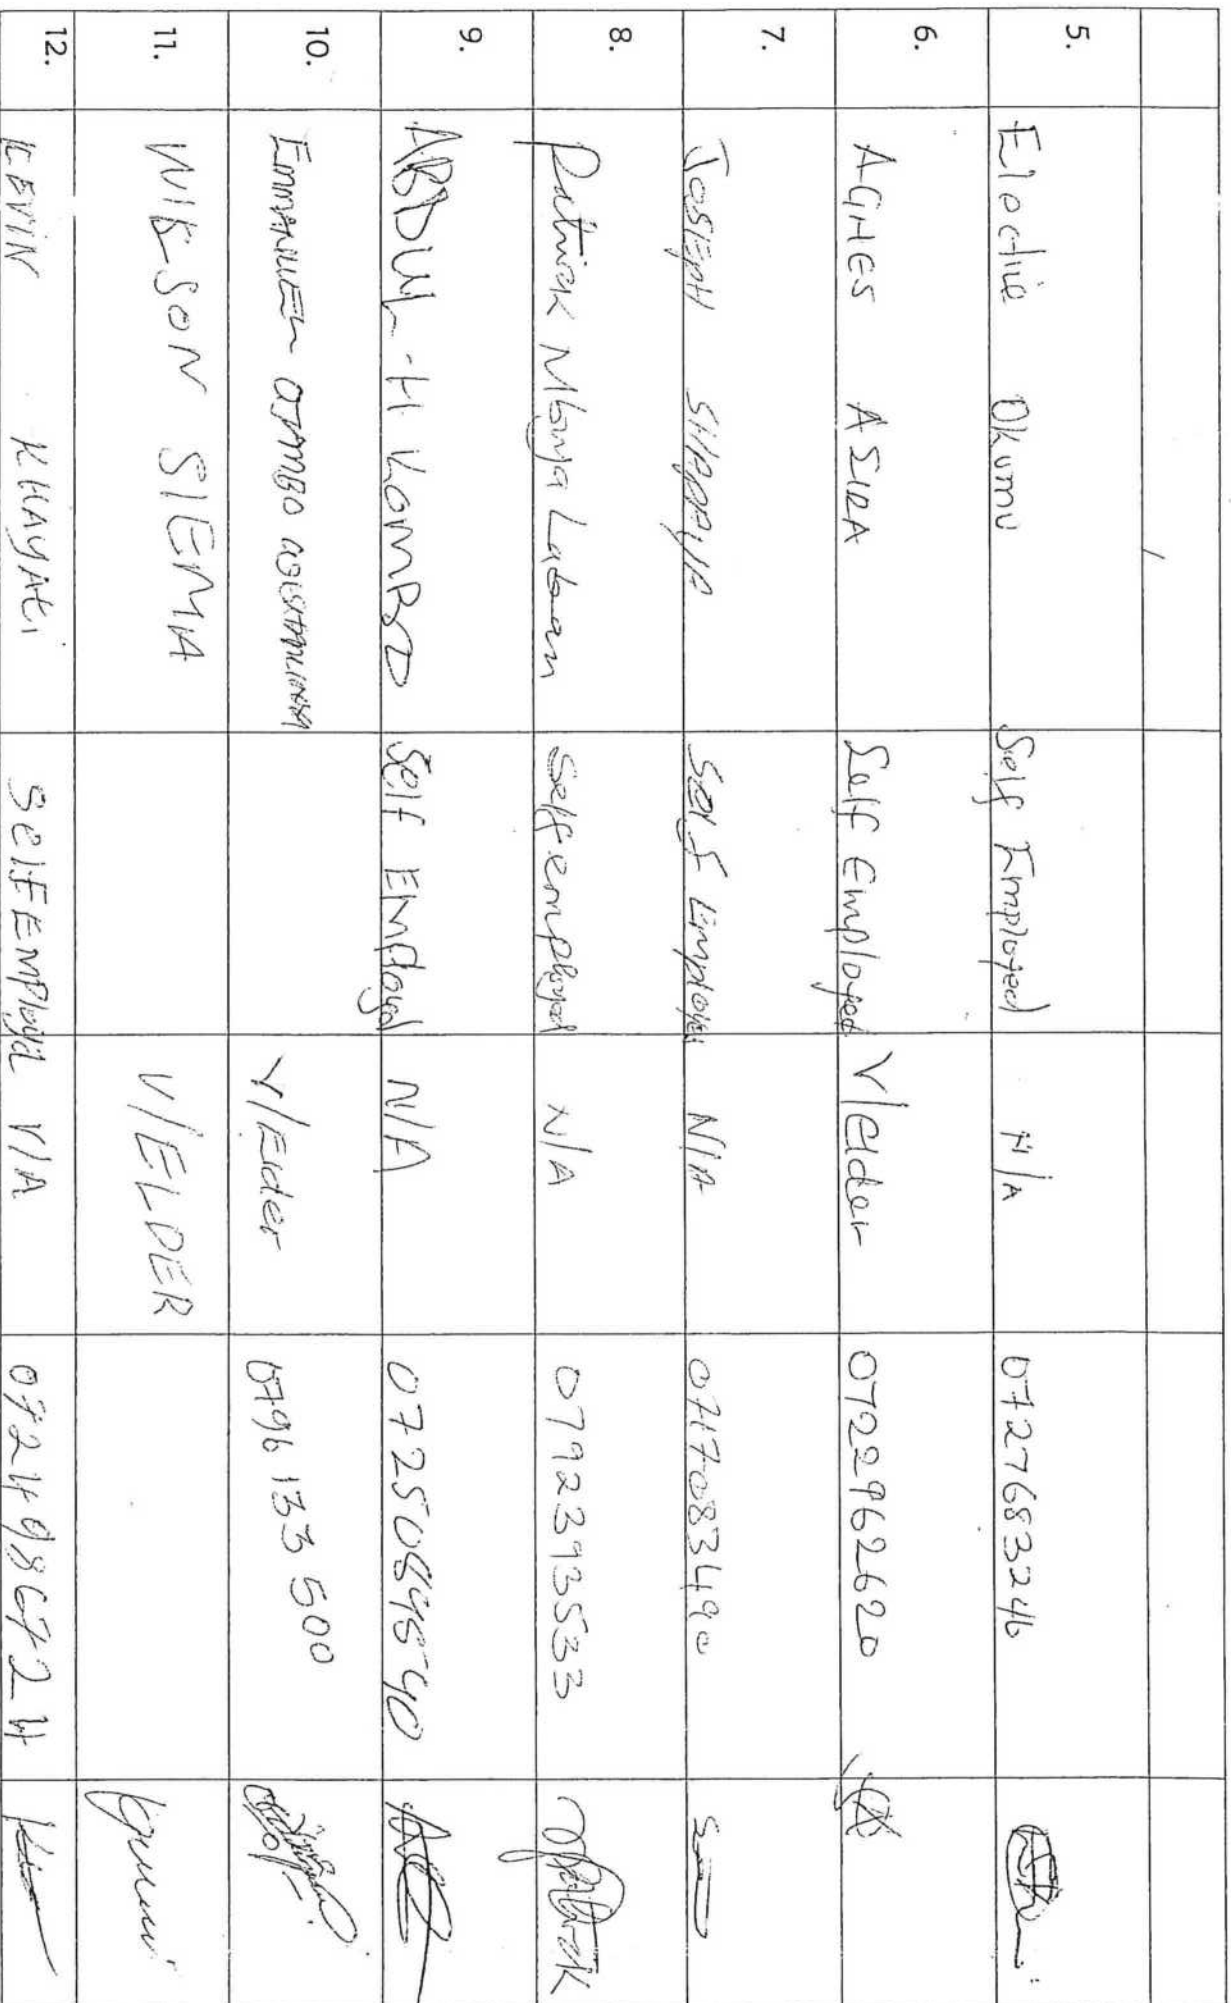 5. Electine Okumu Self Employed N/A 0727683246
6. AGNES ASIRA Self Employed V/elder 0722962620
7. JOSEPH Self Employed N/A 0717083490
8. Patrick Labam Self employed N/A 0792393533
9. ABDUL-H KOMBO Self Employed N/A
10. EMMANUEL OTAMBO V/Elder 0796 133 500
11. WILSON SIEMA V/ELDER
12. KEVIN KHAYATI SELF EMPloyd V/A 0724986724